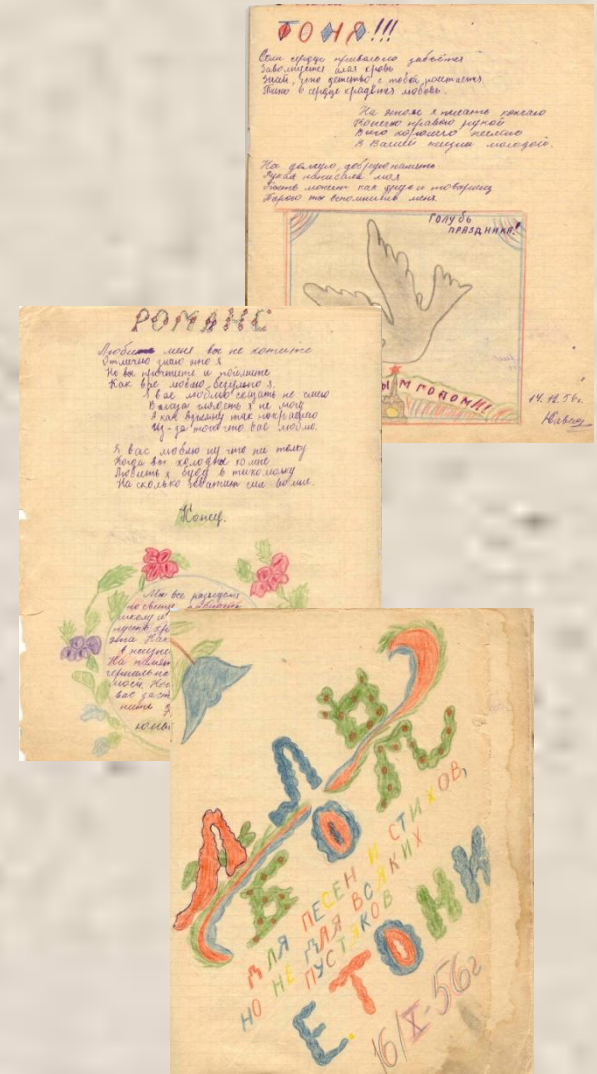 ТОНЯ!!!
Если сердце тривожно забьётся
Заволнуется алая кровь
Знай, что детство с тобой растаётся
Тихо в сердце крадётся любовь.
На этом я писать кончаю
Конечно правою рукой
Всего хорошего желаю
В Вашей жизни молодой.
На долгую, добрую память
написала моя
Быть может как друга и товарища
Порою ты вспомнишь меня.
ГОЛУБЬ
ПРАЗДНИКА!
ЫМ ГОДОМ!!!
14.12.56г.
РОМАНС
Любить меня вы не хотите
Отлично знаю это я
Но вы прочтите и поймите
Как вас люблю безумно я.
Я вас люблю сказать не смею
В глаза глядеть я не могу
Я как
Из-за того что вас люблю.
Я вас люблю ну что же толку
Когда вы холодны ко мне
Любить я буду в тихомолку
На сколько хватит сил во мне.
Конец.
Мы все разъедемся
по свету
школу и
пусть
эта
в
На память
мост.
вас
АЛЬ
БОМ
ДЛЯ ПЕСЕН И СТИХОВ,
НО НЕ ДЛЯ ВСЯКИХ
ПУСТЯКОВ
Е. ТОНИ
16/X-56г